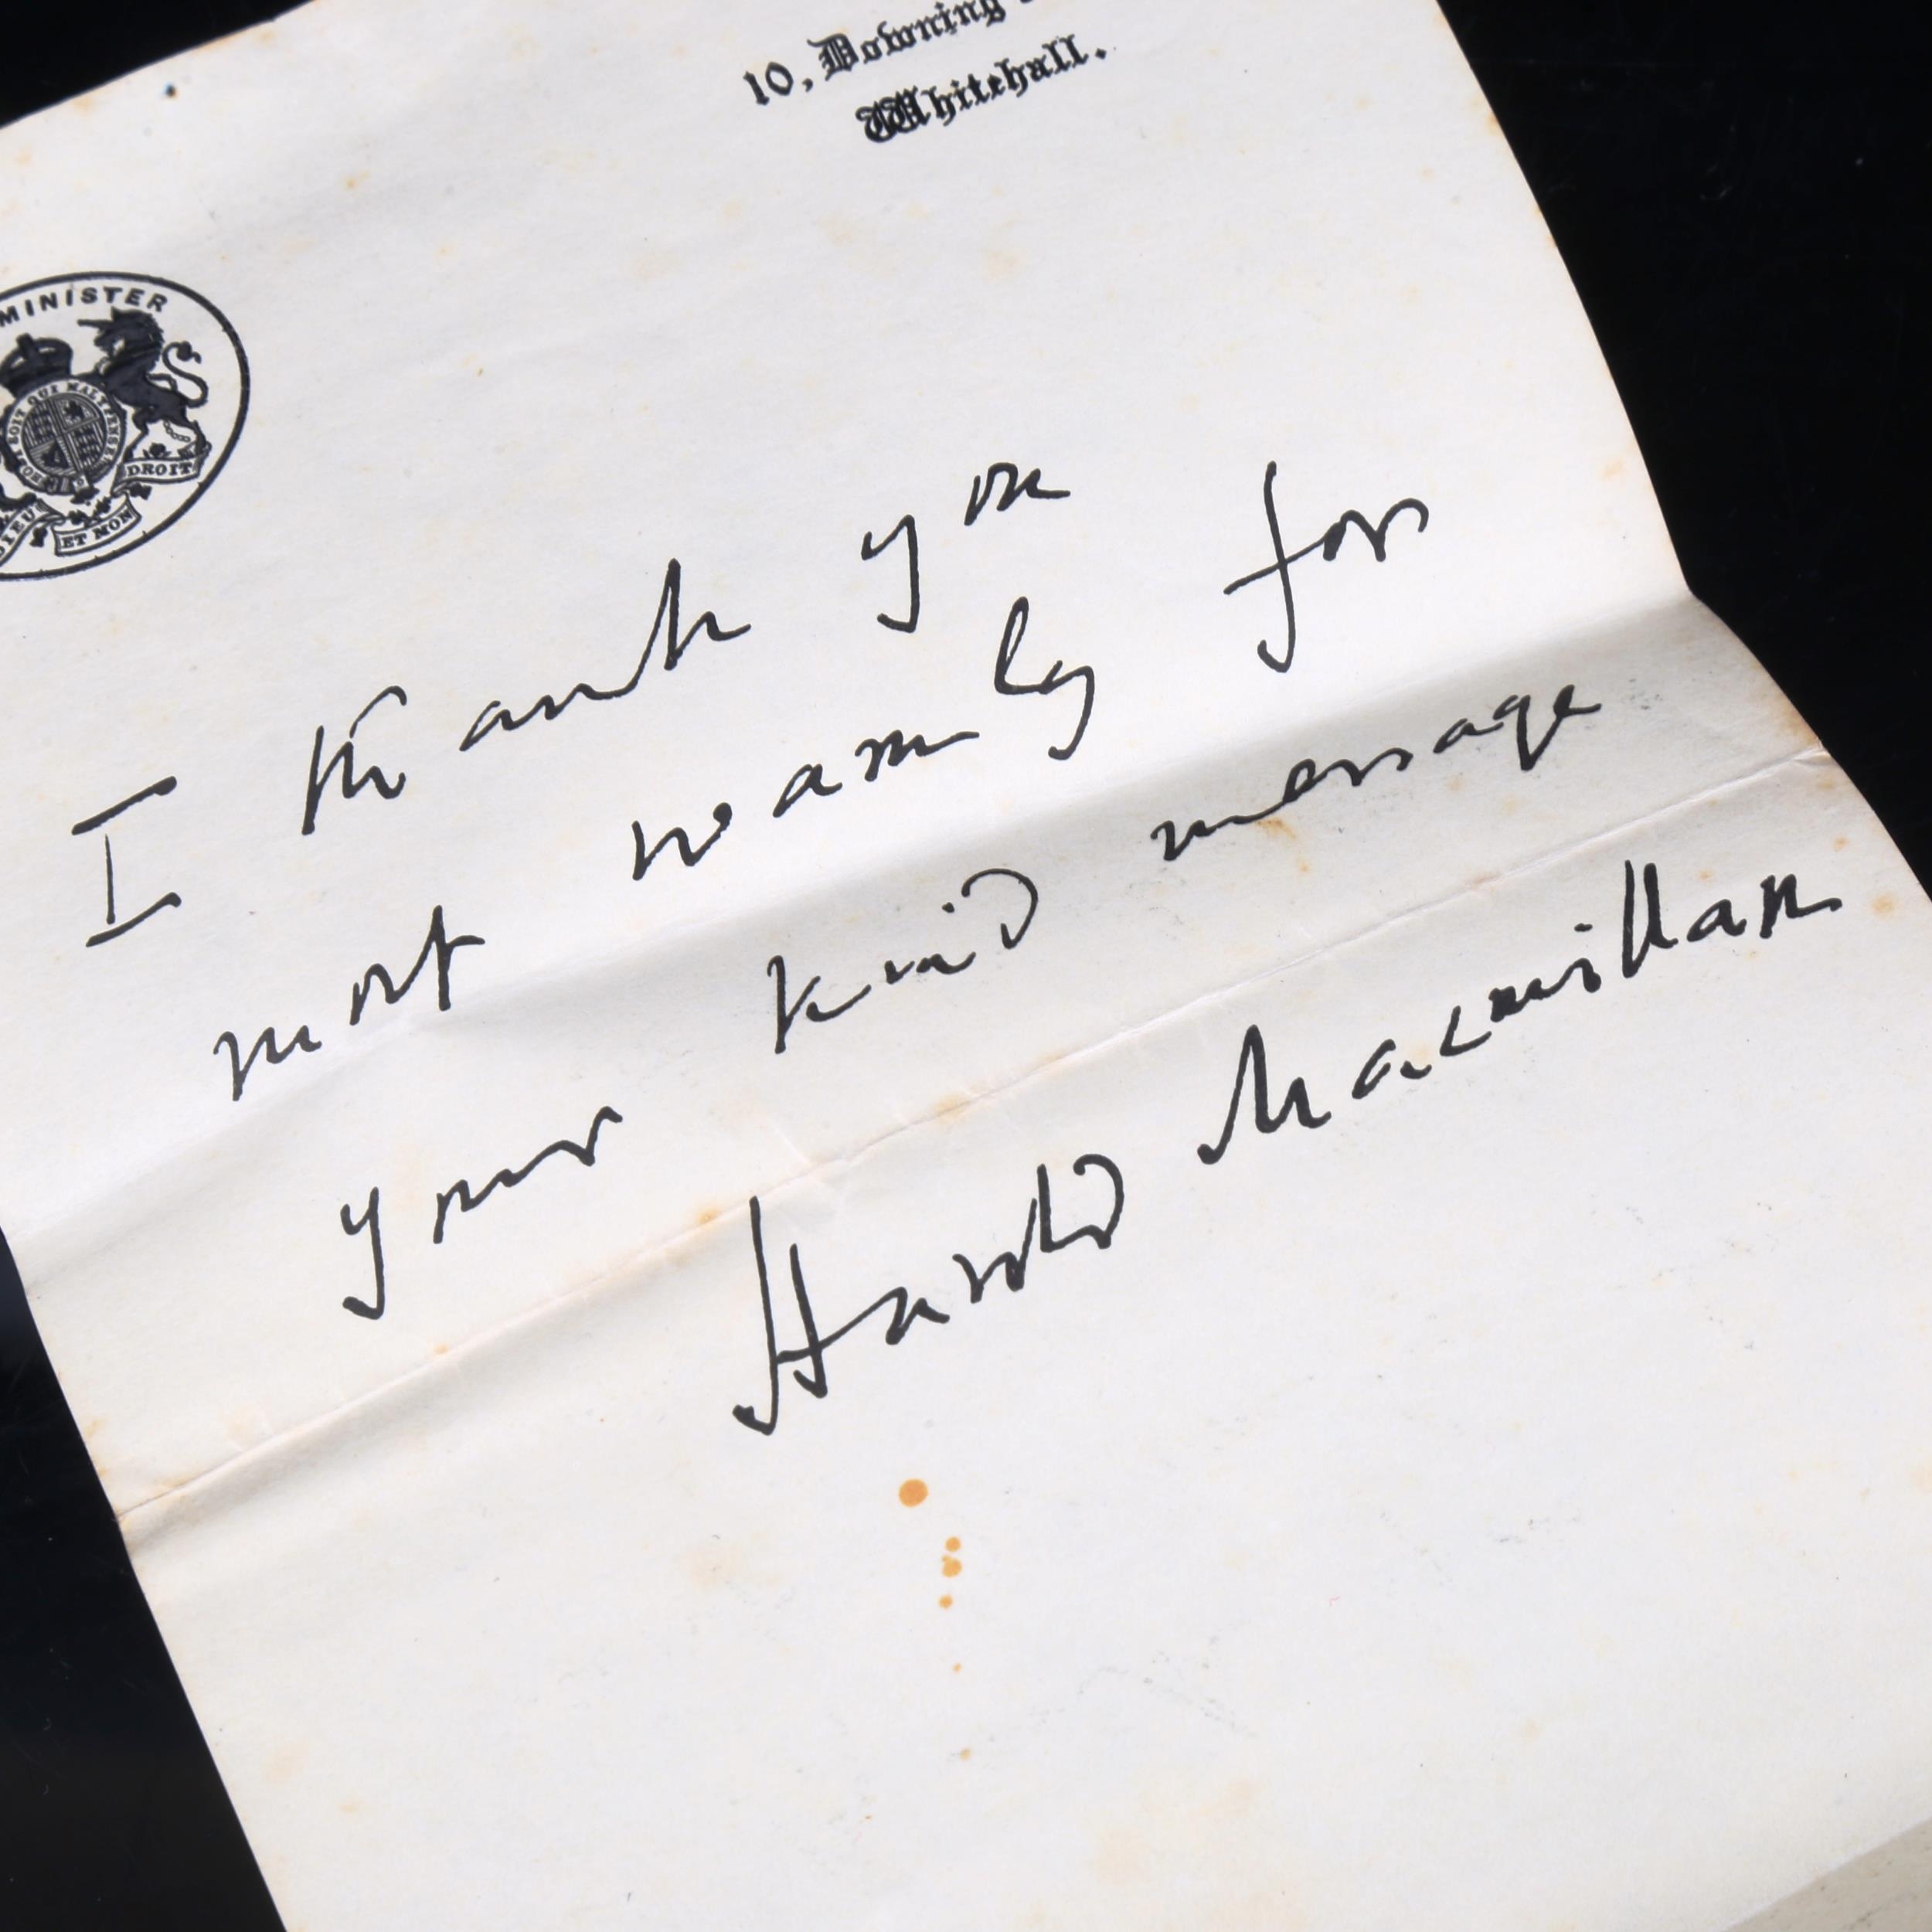 10, Downing
Whitehall.
MINISTER
HONI SOIT QUI MAL Y PENSE
DIEU ET MON DROIT
I thank you
most warmly for
your kind message
Harold Macmillan